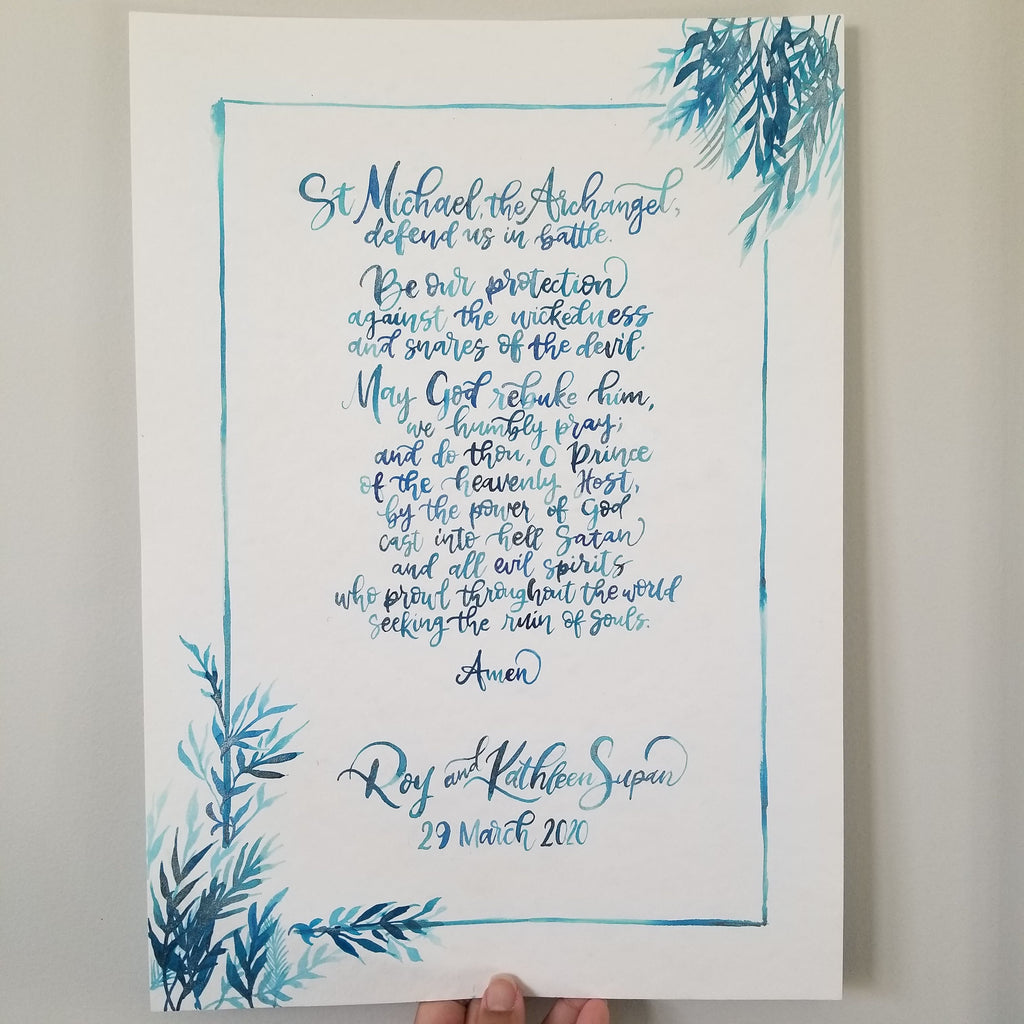 St Michael, the Archangel,
defend us in battle.
Be our protection
against the wickedness
and snares of the devil.
May God rebuke him,
we humbly pray;
and do thou, O Prince
of the heavenly Host,
by the power of God
cast into hell Satan
and all evil spirits
who prowl throughout the world
seeking the ruin of souls.
Amen
Roy and Kathleen Supan
29 March 2020